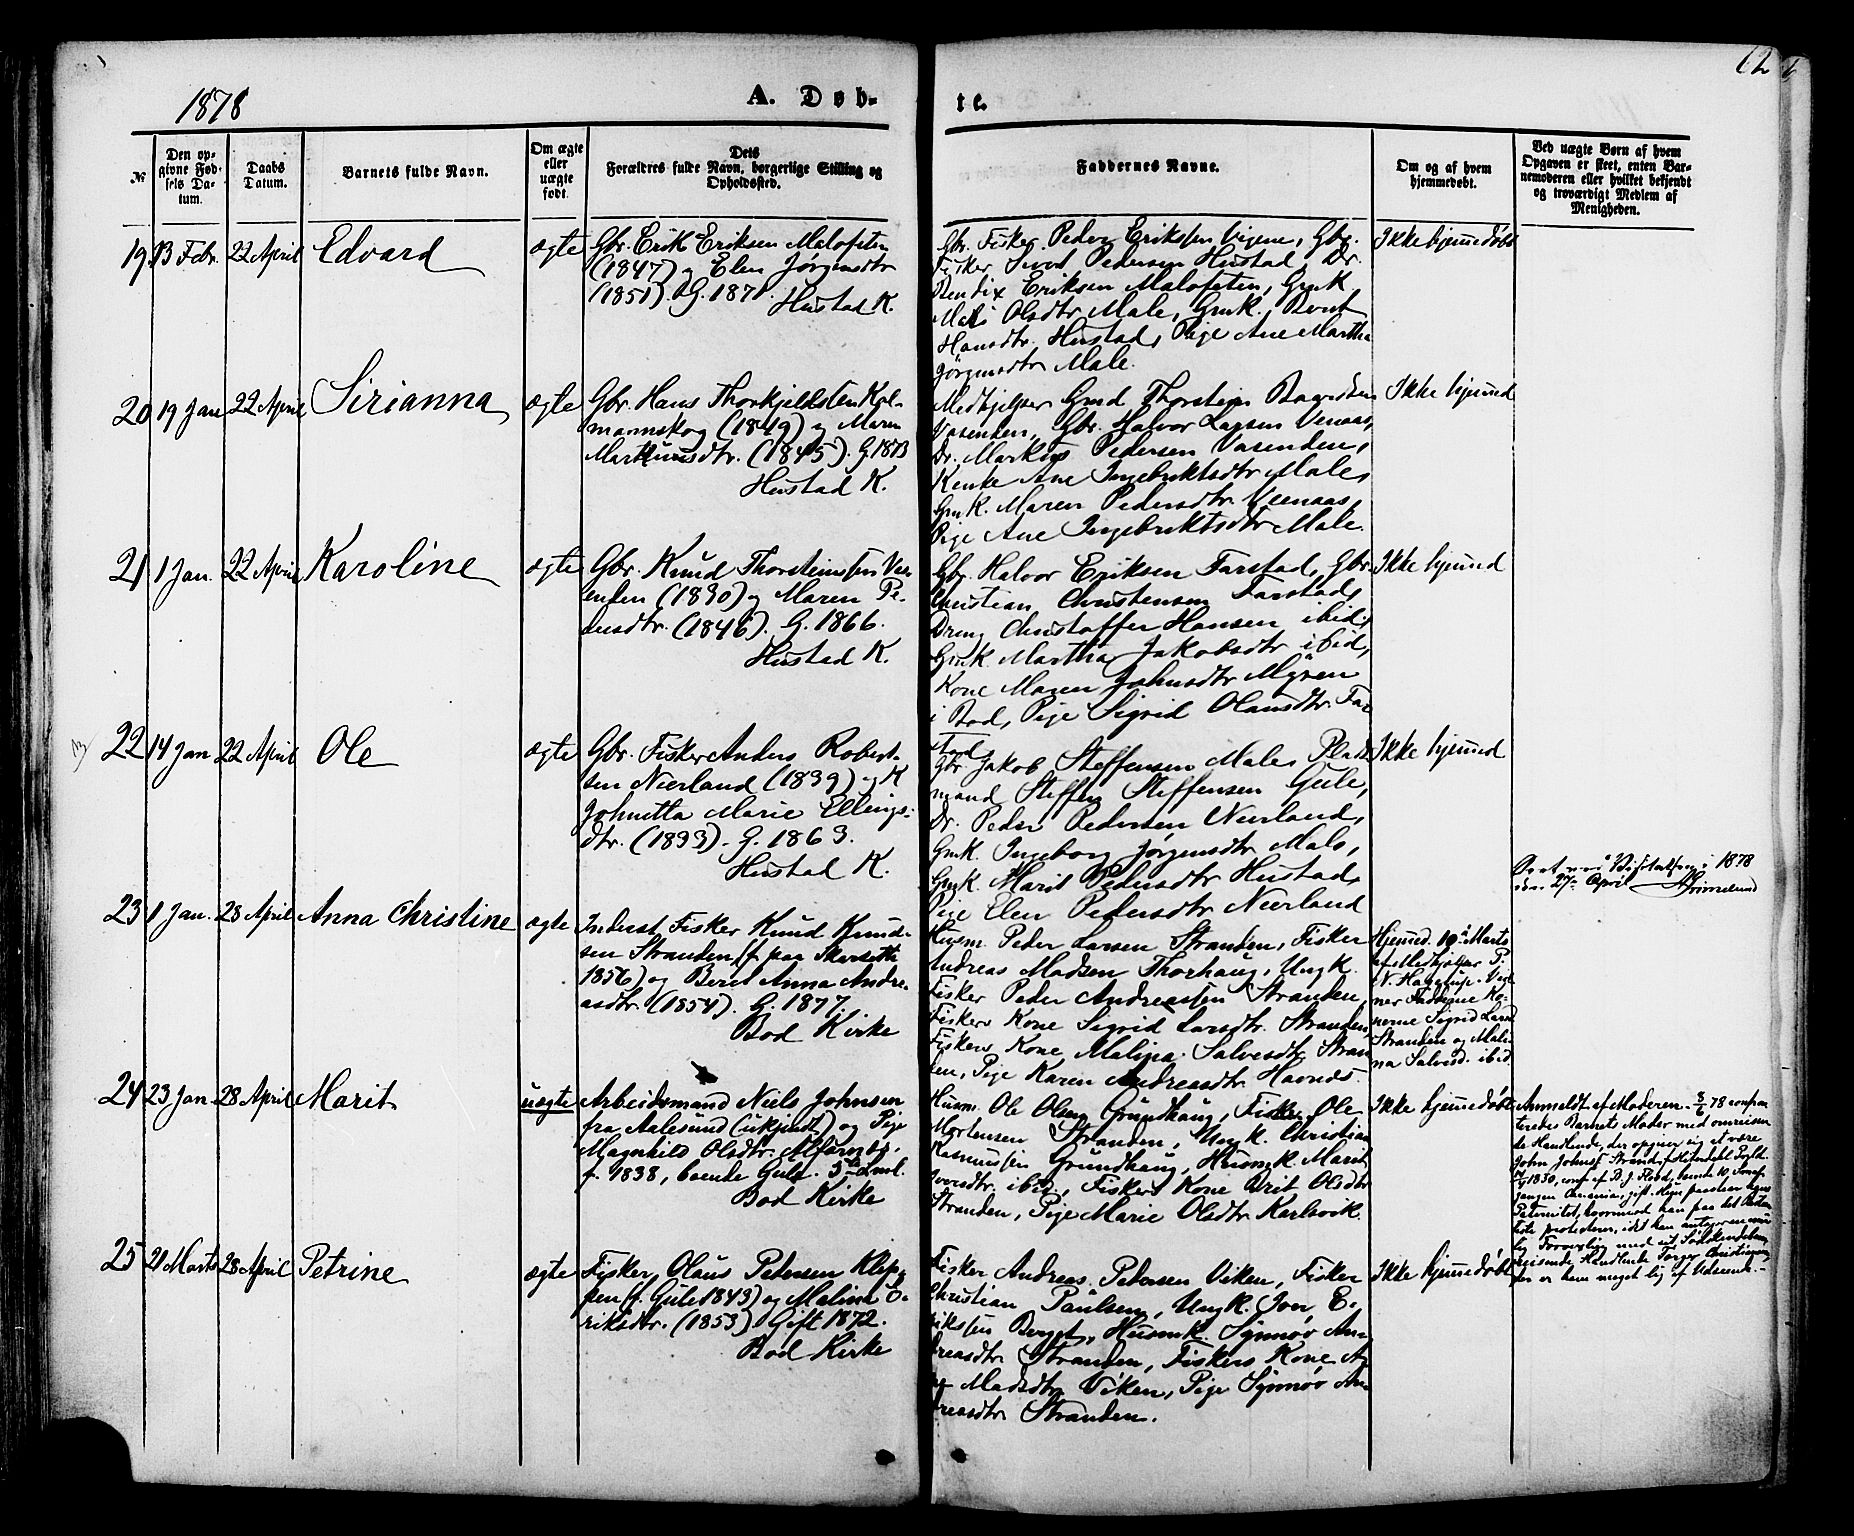 1878
A. Døb-
te.
12
№
Den op-
givne Fød-
sels Da-
tum.
Daabs
Datum.
Barnets fulde Navn.
Om ægte
eller
uægte
født.
Dets
Forældres fulde Navn, borgerlige Stilling og
Opholdssted.
Faddernes Navne.
Om og af hvem
hjemmedøbt.
Ved uægte Børn af hvem
Opgaven er skeet, enten Bar-
nemoderen eller hvilket bekjendt
og troværdigt Medlem af
Menigheden.
19
13 Febr.
22 April
Edvard
ægte
Gbr. Erik Eriksen Malofeten
(1847) og Elen Jørgensdtr
(1851). G. 1871.
Hustad K.
Gbr. Fisker Peder Eriksen Vigene, Gbr.
Fisker Sivert Pedersen Hustad, Dr.
Bendix Eriksen Malofeten, Gmk.
Olsdtr Male, Gmk. Berit
Hansdtr. Hustad, Pige Ane Martha
Jørgensdtr Male.
Ikke hjemmedøbt
20
19 Jan
22 April
Sirianna
ægte
Gbr. Hans Thorkjeldsen Kol-
mannskog (1849) og Maren
Marthinusdtr. (1845). G. 1873
Hustad K.
Medhjelper Gmd Thorstein Baardsen
Vasenden, Gbr. Halvor Larsen Venaas,
Dr. Markus Pedersen Vasenden,
Kenke Ane Ingebriktsdtr Male,
Gmk. Maren Pedersdtr. Veenaas,
Pige Ane Ingebriktsdtr Male.
Ikke hjemmd
21
1 Jan.
22 April
Karoline
ægte
Gbr. Knud Thorsteinssen Vas-
enden (1830) og Maren Pe-
dersdtr. (1846). G. 1866.
Hustad K.
Gbr. Halvor Eriksen Farstad, Gbr.
Christian Christensen Farstad,
Dreng Christoffer Hansen ibid.,
Gmk. Martha Jakobsdtr ibid,
Kone Maren Johnsdtr Myren
i Bod, Pige Sigrid Olausdtr. Far-
stad
Ikke hjemmd
22
14 Jan
22 April
Ole
ægte
Gbr. Fisker Anders Robert-
sen Nierland (1839) og K
Johnetta Marie Ellings-
dtr. (1833). G. 1863.
Hustad K.
Gbr. Jakob Steffensen Male, Plads-
mand Steffen Steffensen Gule,
Dr. Peder Pedersen Nierland,
Gmk. Ingeborg Jørgensdtr Male,
Gmk. Marit Pedersdtr Hustad,
Pige Elen Pedersdtr Nierland
Ikke hjemmd
1878
den 27de April
23
1 Jan.
28 April
Anna Christine
ægte
Inderst Fisker Knud Knud-
sen Stranden (f. paa Skarsette
1856) og Beret Anna Andre-
asdtr. (1854). G. 1877.
Bod Kirke
Husm. Peder Larsen Stranden, Fisker
Andreas Madsen Thorhaug, Ungk.
Fisker Peder Andreassen Stranden,
Fiskers Kone Sigrid Larsdtr. Stranden
Fiskers Kone Malina Salvesdtr Stran-
den, Pige Karen Andreasdtr. Havnes.
Hjemmd. 10de Marts
af Medhjelper P.
N. Haugrup. Vid-
ner Fadderne Ko-
nerne Sigrid Larsd
Stranden og Mali-
na Salvesd. ibid.
24
23 Jan.
28 April
Marit
uægte
Arbeidsmand Niels Johnsen
fra Aalesund (ukjendt) og Pige
Magnhild Olsdtr.
f. 1838, boende Gule.
Bod Kirke
Husm. Ole Olsen Grundhaug, Fisker Ole
Mortensen Stranden, Ungk. Christian
Rasmussen Grundhaug, Husmk. Marit
Iversdtr. ibid., Fiskers Kone Brit Olsdtr
Stranden, Pige Marie Olsdtr Karlsvik.
Ikke hjemmedøbt
Anmeldt af Moderen.
Barnets Moder med omreisen-
de Handlende, der opgiver sig at være
John Johns. Strand
1850, conf af
gift. Men
Paternitet, hvorimod han paa det
25
21 Marts
28 April
Petrine
ægte
Fisker Olaus Pedersen Klep-
pen (f. Gule 1843) og Malina E-
riksdtr. (1853) Gift 1872.
Bod Kirke
Fisker Andreas Pedersen Viken, Fisker
Christian Paulsen, Ungk. Jon E-
riksen Berget, Husmk. Synnøv An-
dreasdtr Stranden, Fiskers Kone
Madsdtr Viken, Pige Synnøv An-
dreasdtr Stranden.
Ikke hjemmedøbt